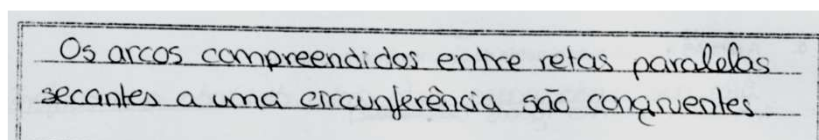 Os arcos compreendidos entre retas paralelas
secantes a uma circunferência são congruentes